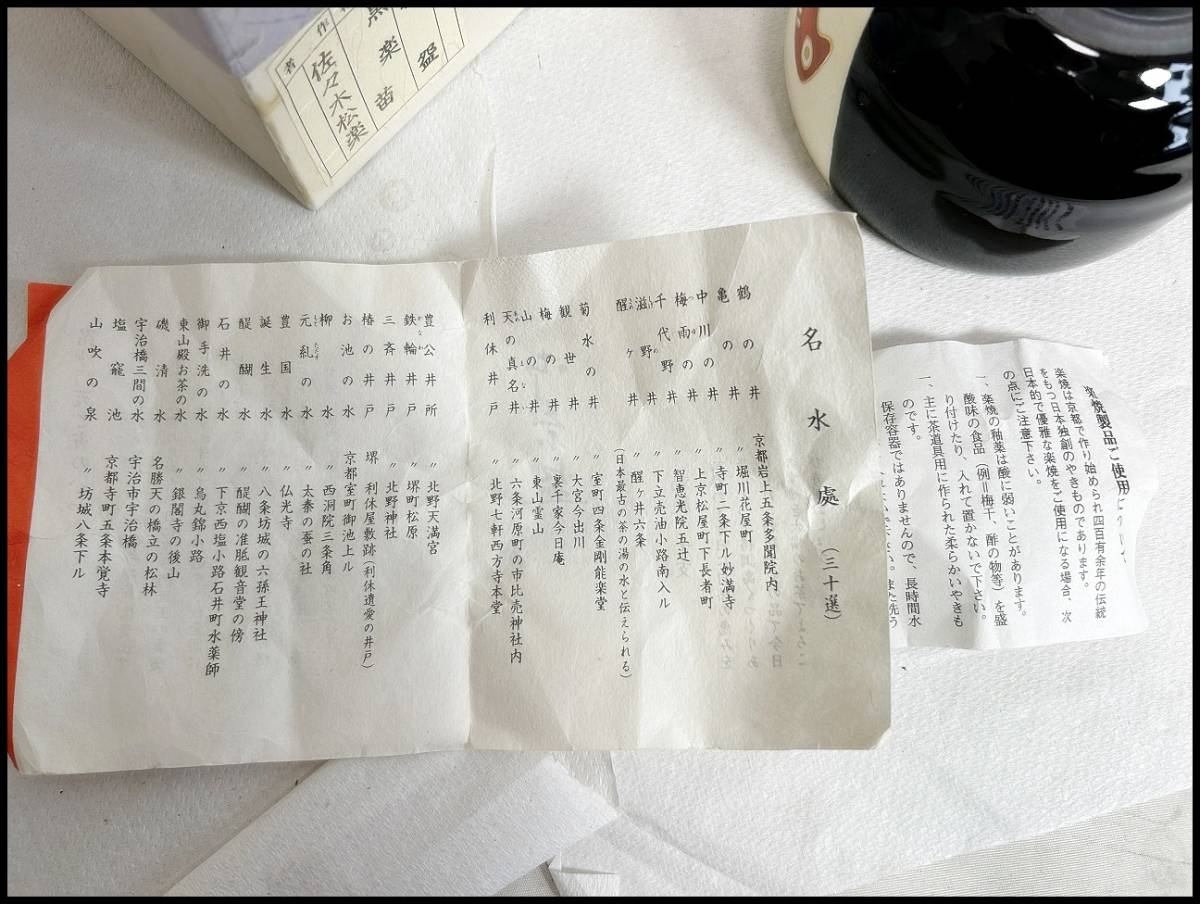 作者
佐々木松楽
名水處(三十選)
鶴の井 京都岩上五条多聞院内
亀の井 〃 堀川花屋町
中川の井 〃 寺町二条下ル妙満寺
梅雨の井 〃 上京松屋町下長者町
千代野井 〃 智恵光院五辻
滋野井 〃 下立売油小路南入ル
醒ヶ井 〃 醒ヶ井六条
(日本最古の茶の湯の水と伝えられる)
菊水の井 〃 室町四条金剛能楽堂
観世井 〃 大宮今出川
梅の井 〃 裏千家今日庵
山の井 〃 東山霊山
天の真名井 〃 六条河原町の市比売神社内
利休井戸 〃 北野七軒西方寺本堂
豊公井所 〃 北野天満宮
鉄輪井戸 〃 堺町松原
三斉井戸 〃 北野神社
椿の井戸 堺 利休屋敷跡(利休遺愛の井戸)
お池の水 京都室町御池上ル
柳水 〃 西洞院三条角
元糺の水 〃 太秦の蚕の社
豊国水 〃 仏光寺
誕生水 〃 八条坊城の六孫王神社
醍醐水 〃 醍醐の准胝観音堂の傍
石井の水 〃 下京西塩小路石井町水薬師
御手洗の水 〃 烏丸錦小路
東山殿お茶の水 〃 銀閣寺の後山
磯清水 名勝天の橋立の松林
宇治橋三間の水 宇治市宇治橋
塩竈池 京都寺町五条本覚寺
山吹の泉 〃 坊城八条下ル
楽焼製品ご使用
楽焼は京都で作り始められ四百有余年の伝統
をもつ日本独創のやきものであります。
日本的で優雅な楽焼をご使用になる場合、次
の点にご注意下さい。
一、楽焼の釉薬は酸に弱いことがあります。
酸味の食品(例＝梅干、酢の物等)を盛
り付けたり、入れて置かないで下さい。
一、主に茶道具用に作られた柔らかいやきも
のです。
保存容器ではありませんので、長時間水
さい。また洗う